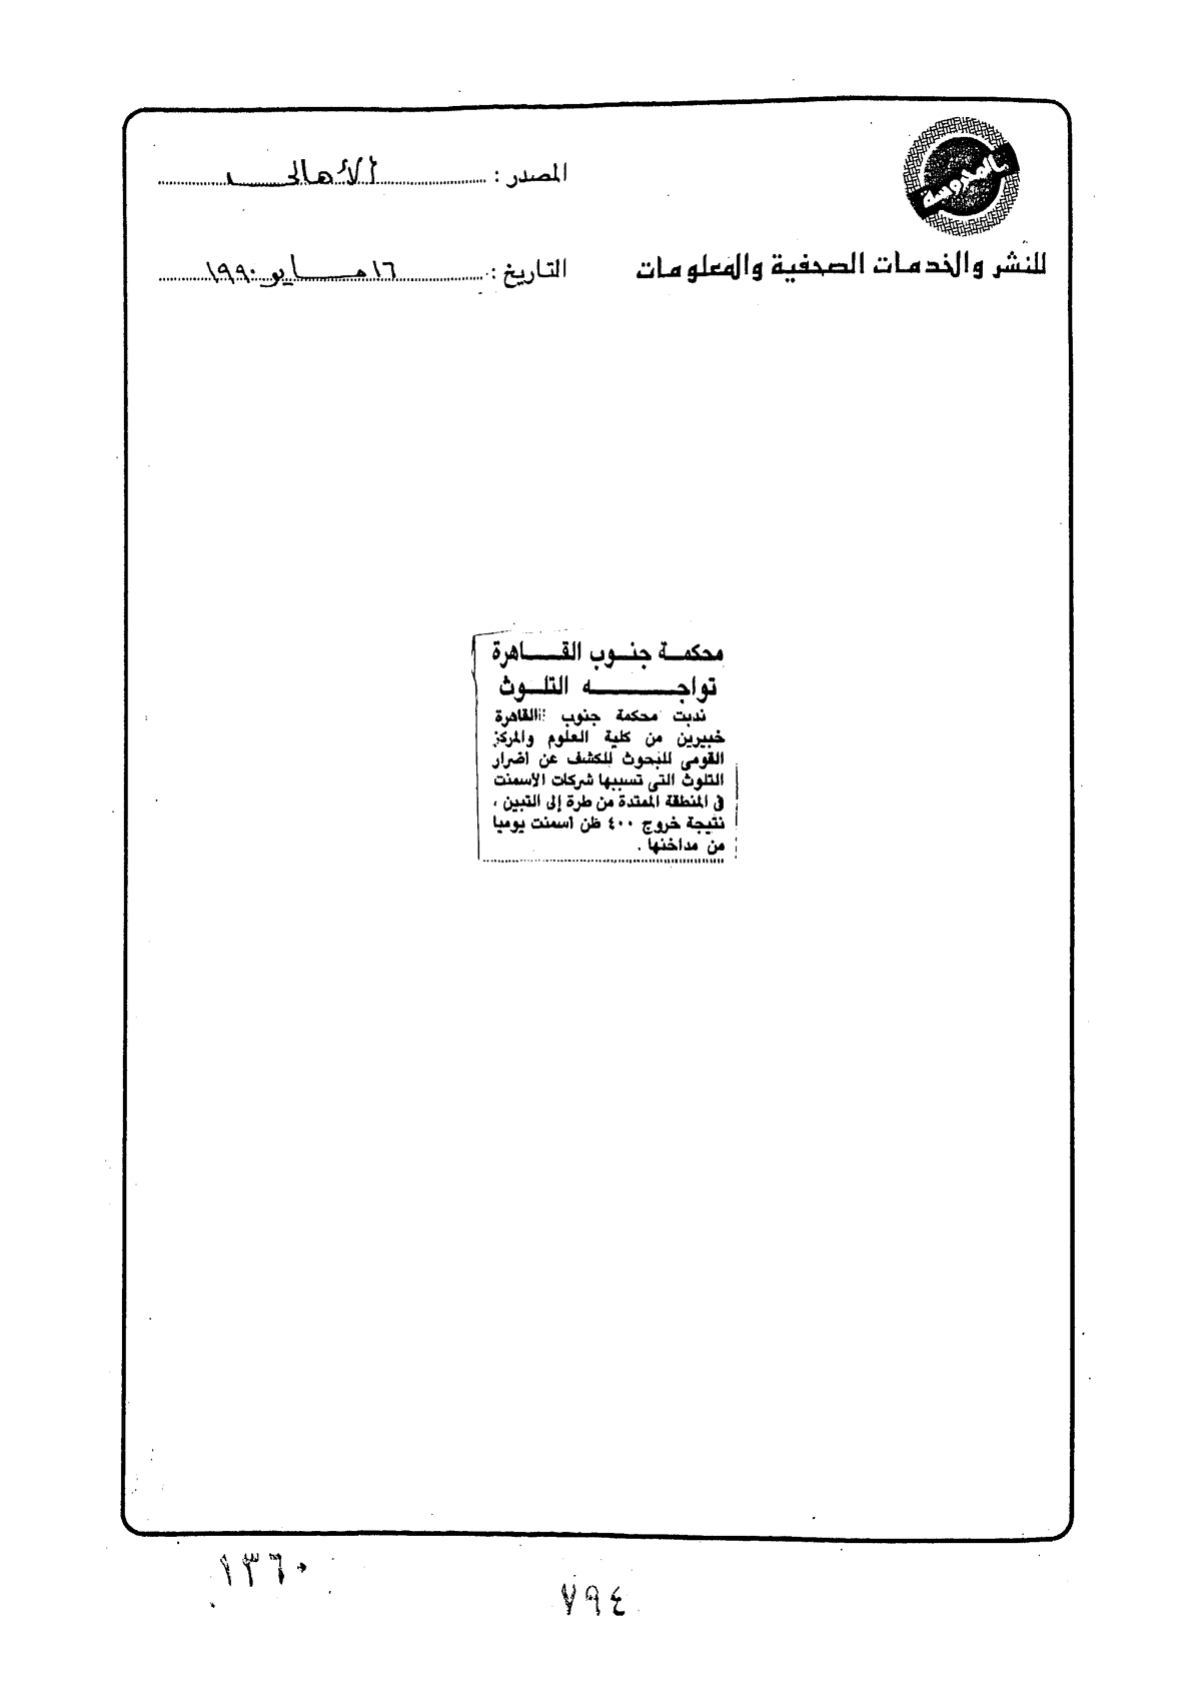 المحروسة
للنشر والخدمات الصحفية والمعلومات
المصدر : الأهالى
التاريخ : ١٦ مايو ١٩٩٠
محكمة جنوب القاهرة
تواجه التلوث
ندبت محكمة جنوب القاهرة
خبيرين من كلية العلوم والمركز
القومى للبحوث للكشف عن أضرار
التلوث التى تسببها شركات الأسمنت
فى المنطقة الممتدة من طرة إلى التبين ،
نتيجة خروج ٤٠٠ طن أسمنت يوميا
من مداخنها .
١٣٦٠
٧٩٤